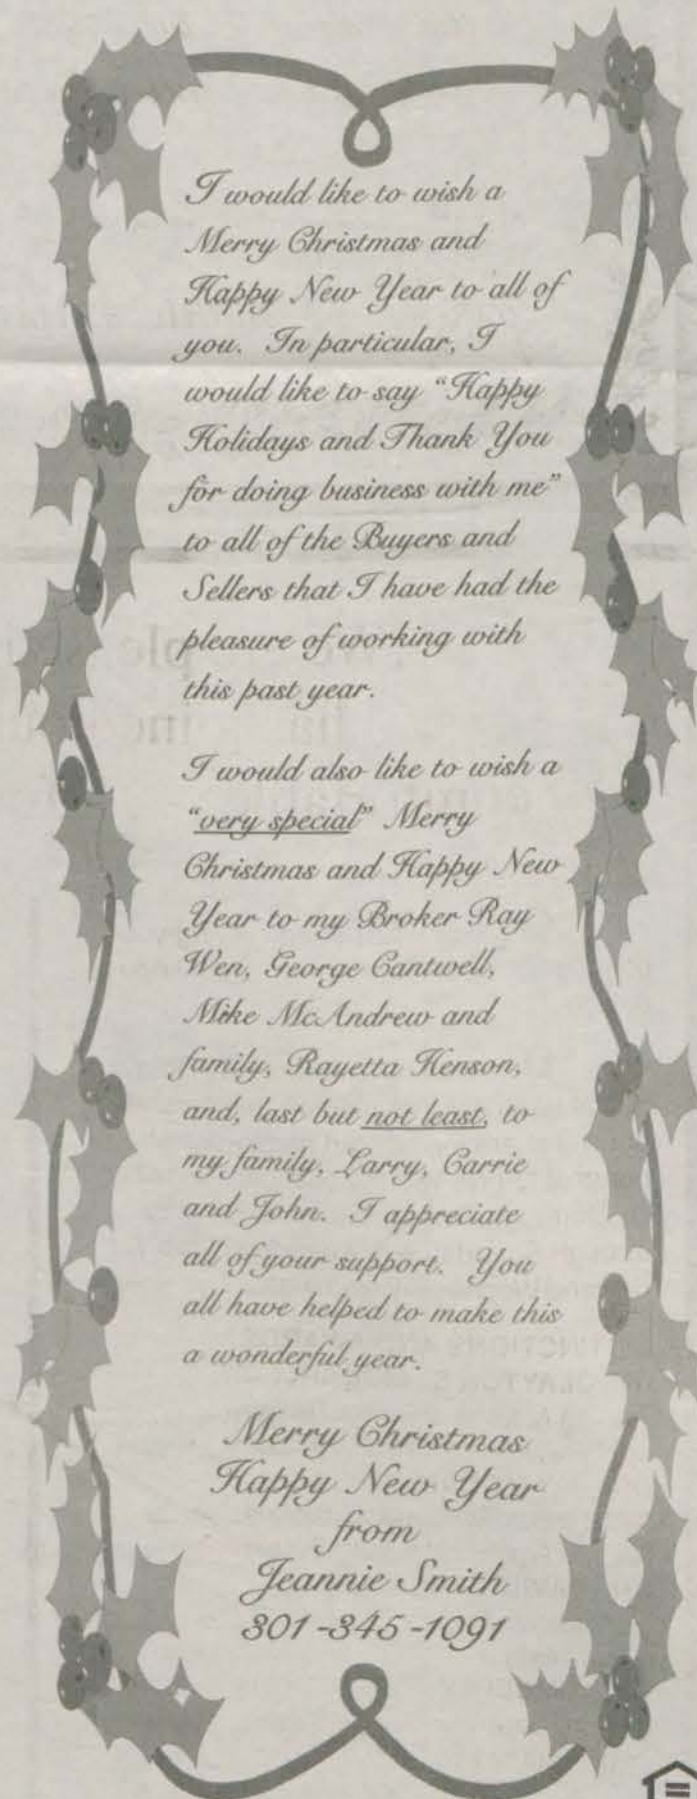 I would like to wish a
Merry Christmas and
Happy New Year to all of
you. In particular, I
would like to say “Happy
Holidays and Thank You
for doing business with me”
to all of the Buyers and
Sellers that I have had the
pleasure of working with
this past year.
I would also like to wish a
“very special” Merry
Christmas and Happy New
Year to my Broker Ray
Wen, George Cantwell,
Mike McAndrew and
family, Rayetta Henson,
and, last but not least, to
my family, Larry, Carrie
and John. I appreciate
all of your support. You
all have helped to make this
a wonderful year.
Merry Christmas
Happy New Year
from
Jeannie Smith
301-345-1091